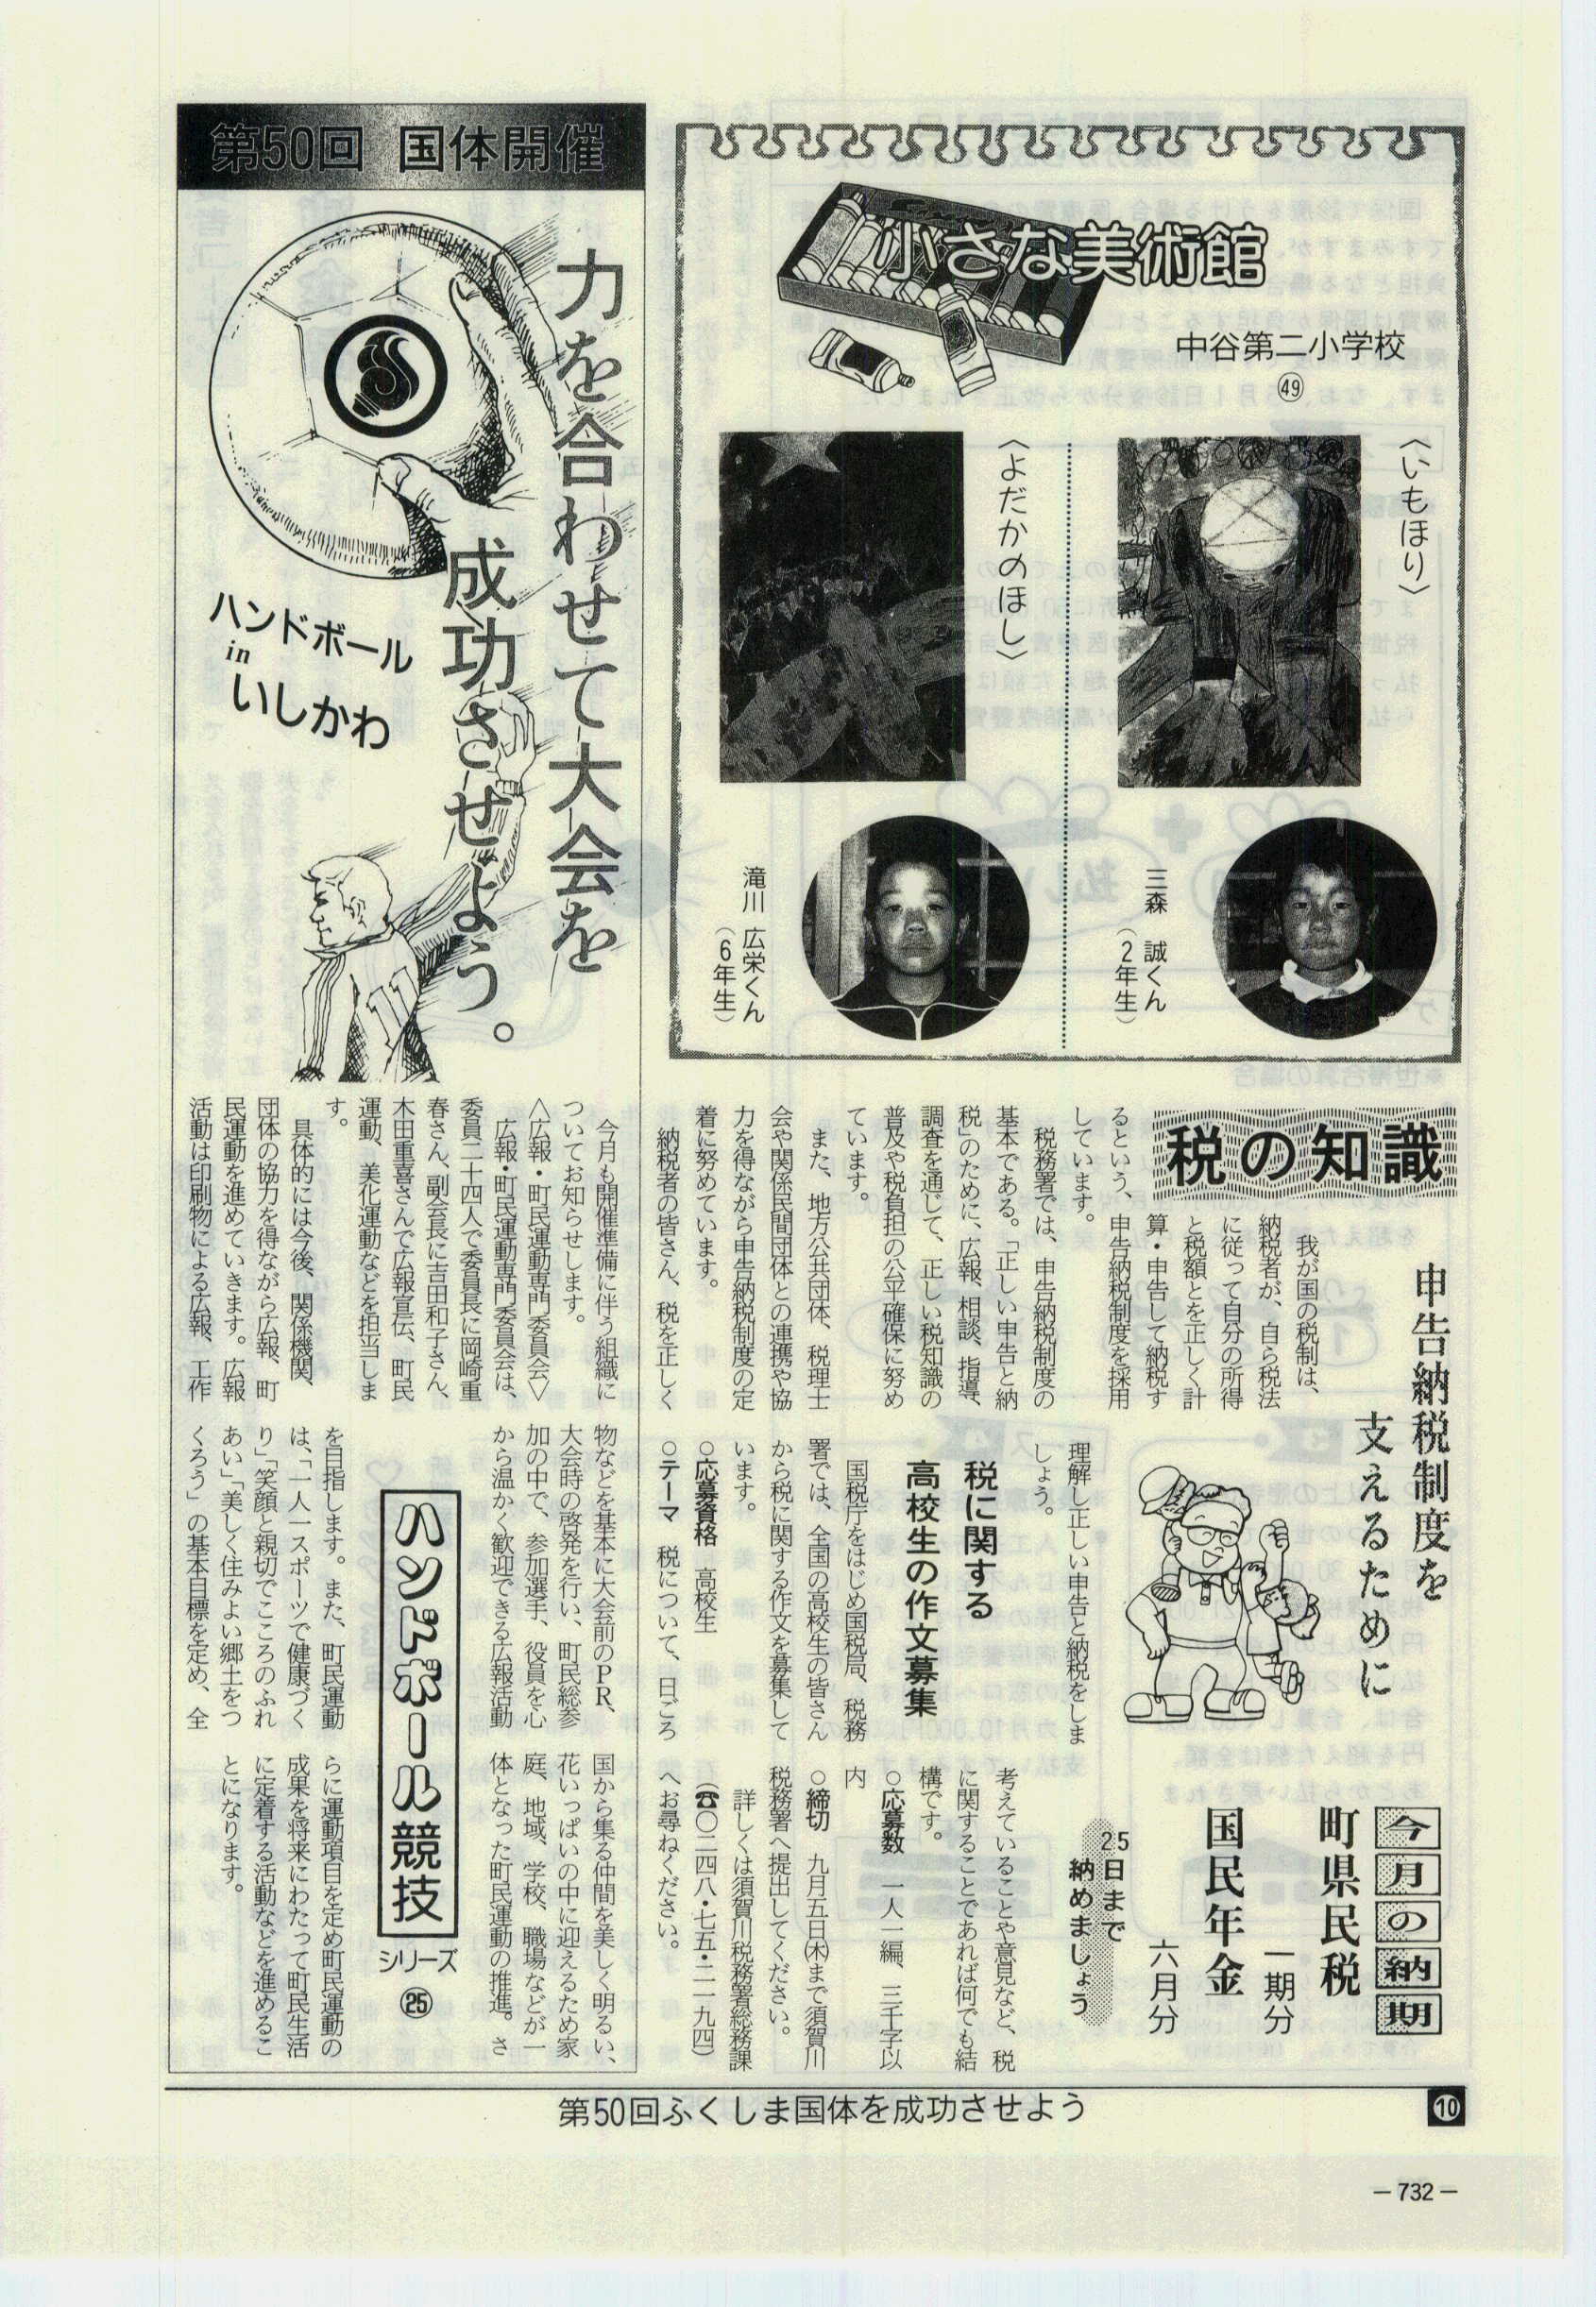 小さな美術館
中谷第二小学校
㊾
〈いもほり〉
三森　誠くん
（２年生）
〈よだかのほし〉
滝川　広栄くん
（６年生）
税の知識
申告納税制度を
支えるために
我が国の税制は、
納税者が、自ら税法
に従って自分の所得
と税額とを正しく計
算・申告して納税す
るという、申告納税制度を採用
しています。
税務署では、申告納税制度の
基本である。「正しい申告と納
税」のために、広報、相談、指導、
調査を通じて、正しい税知識の
普及や税負担の公平確保に努め
ています。
また、地方公共団体、税理士
会や関係民間団体との連携や協
力を得ながら申告納税制度の定
着に努めています。
納税者の皆さん、税を正しく
理解し正しい申告と納税をしま
しょう。
税に関する
高校生の作文募集
国税庁をはじめ国税局、税務
署では、全国の高校生の皆さん
から税に関する作文を募集して
います。
○応募資格　高校生
○テーマ　税について、日ごろ
考えていることや意見など、税
に関することであれば何でも結
構です。
○応募数　一人一編、三千字以
内
○締切　九月五日㈭まで須賀川
税務署へ提出してください。
詳しくは須賀川税務署総務課
（☎〇二四八・七五・二一九四）
へお尋ねください。
今月の納期
町県民税
一期分
国民年金
六月分
25日まで
納めましょう
第50回 国体開催
力を合わせて大会を
成功させよう。
ハンドボール
in
いしかわ
今月も開催準備に伴う組織に
ついてお知らせします。
＜広報・町民運動専門委員会＞
広報・町民運動専門委員会は、
委員二十四人で委員長に岡崎重
春さん、副会長に吉田和子さん、
木田重喜さんで広報宣伝、町民
運動、美化運動などを担当しま
す。
具体的には今後、関係機関、
団体の協力を得ながら広報、町
民運動を進めていきます。広報
活動は印刷物による広報、工作
物などを基本に大会前のＰＲ、
大会時の啓発を行い、町民総参
加の中で、参加選手、役員を心
から温かく歓迎できる広報活動
を目指します。また、町民運動
は、「一人一スポーツで健康づく
り」「笑顔と親切でこころのふれ
あい」「美しく住みよい郷土をつ
くろう」の基本目標を定め、全
国から集る仲間を美しく明るい、
花いっぱいの中に迎えるため家
庭、地域、学校、職場などが一
体となった町民運動の推進。さ
らに運動項目を定め町民運動の
成果を将来にわたって町民生活
に定着する活動などを進めるこ
とになります。
ハンドボール競技
シリーズ
㉕
第50回ふくしま国体を成功させよう
10
－732－